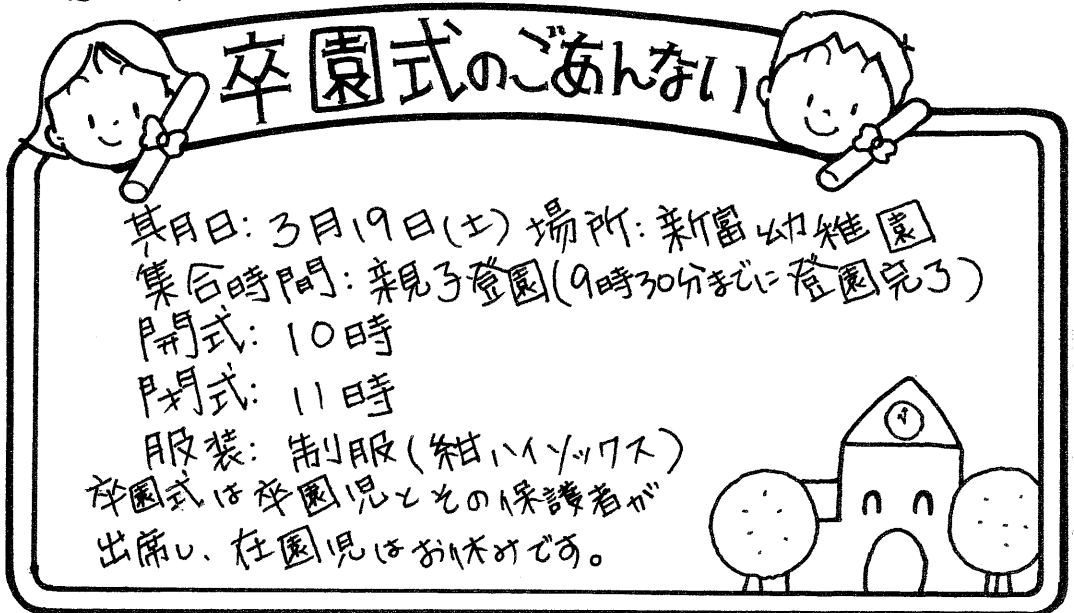 卒園式のごあんない
其月日:3月19日(土) 場所:新富幼稚園
集合時間:親子登園(9時30分までに登園完了)
開式:10時
閉式:11時
服装:制服(紺ハイソックス)
卒園式は卒園児とその保護者が
出席し、在園児はお休みです。